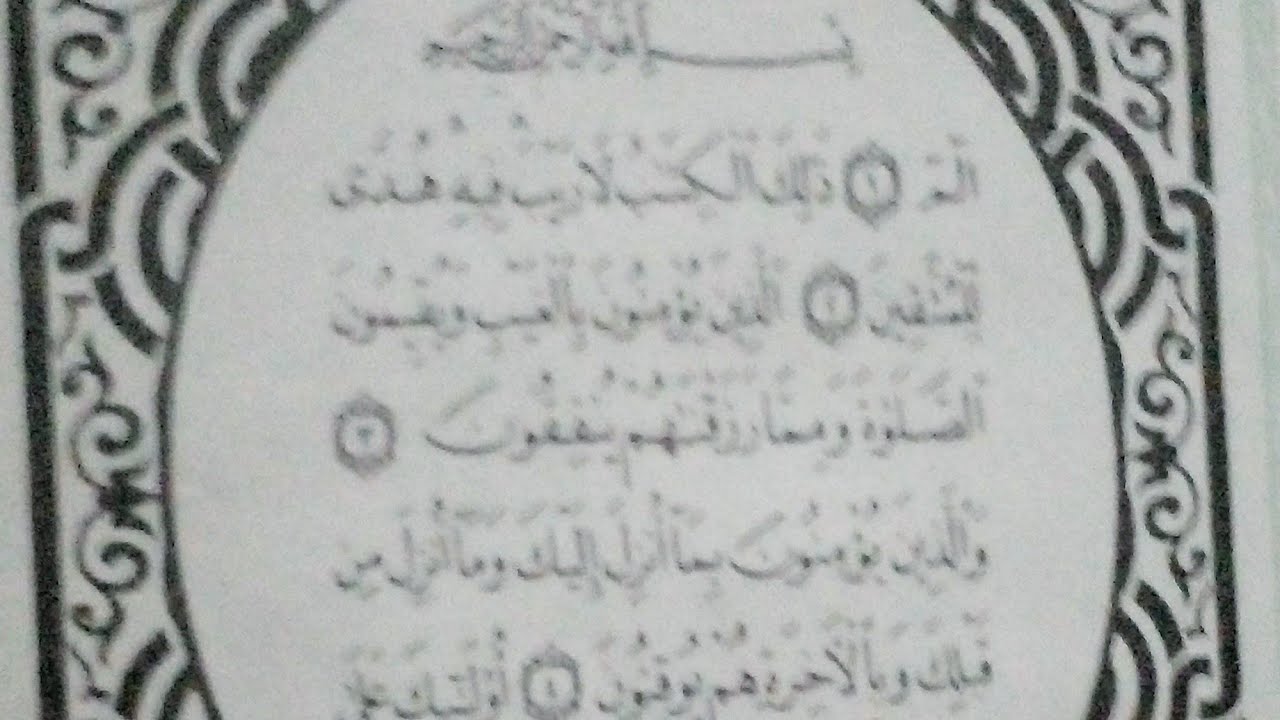 بِسْمِ اللَّهِ الرَّحْمَٰنِ الرَّحِيمِ
الٓمٓ ١ ذَٰلِكَ الْكِتَٰبُ لَا رَيْبَ فِيهِ هُدًى
لِّلْمُتَّقِينَ ٢ الَّذِينَ يُؤْمِنُونَ بِالْغَيْبِ وَيُقِيمُونَ
الصَّلَوٰةَ وَمِمَّا رَزَقْنَٰهُمْ يُنفِقُونَ ٣
وَالَّذِينَ يُؤْمِنُونَ بِمَآ أُنزِلَ إِلَيْكَ وَمَآ أُنزِلَ مِن
قَبْلِكَ وَبِالْآخِرَةِ هُمْ يُوقِنُونَ ٤ أُو۟لَٰٓئِكَ عَلَىٰ